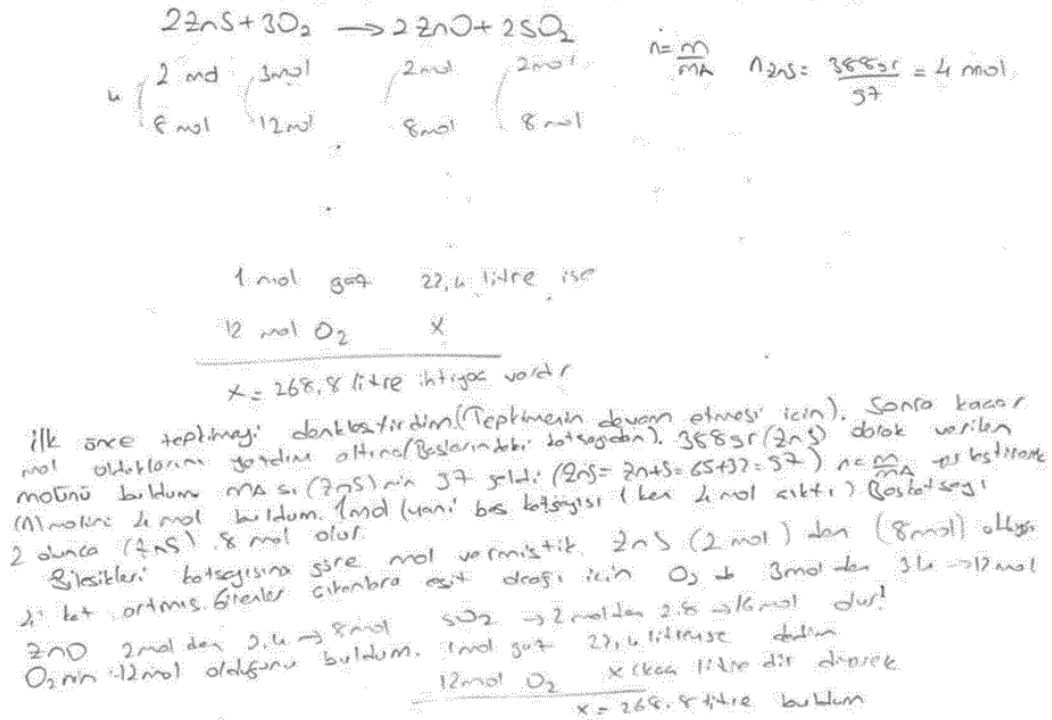 2ZnS + 3O₂ → 2ZnO + 2SO₂
n = m/MA nZnS = 388gr/97 = 4 mol
2 mol 3mol 2mol 2mol
4
8 mol 12mol 8mol 8mol
1 mol gaz 22,4 litre ise
12 mol O₂ x
x = 268,8 litre ihtiyaç vardır
ilk önce tepkimeyi denkleştirdim (Tepkimenin devam etmesi için). Sonra kaçar
mol olduklarını yazdım altına (Başlarındaki katsayıdan). 388gr (ZnS) olarak verilen
molünü buldum MA sı (ZnS) nin 97 geldi (ZnS = Zn+S = 65+32 = 97) n = m/MA
(n) molünü 4 mol buldum. 1mol (yani baş katsayısı 1 ken 4 mol çıktı) Baş katsayı
2 olunca (ZnS) 8 mol olur.
Bileşikleri katsayısına göre mol vermiştik. ZnS (2 mol) den (8mol)
kat artmış. Girenler çıkanlara eşit olcağı için O₂ de 3mol den 3.4 → 12 mol
ZnO 2mol den 2.4 → 8mol SO₂ → 2 molden 2.8 → 16 mol olur!
O₂ nin 12mol olduğunu buldum. 1mol gaz 22,4 litreyse dedim
12mol O₂ x (kaç litre dir diyerek
x = 268,8 litre buldum